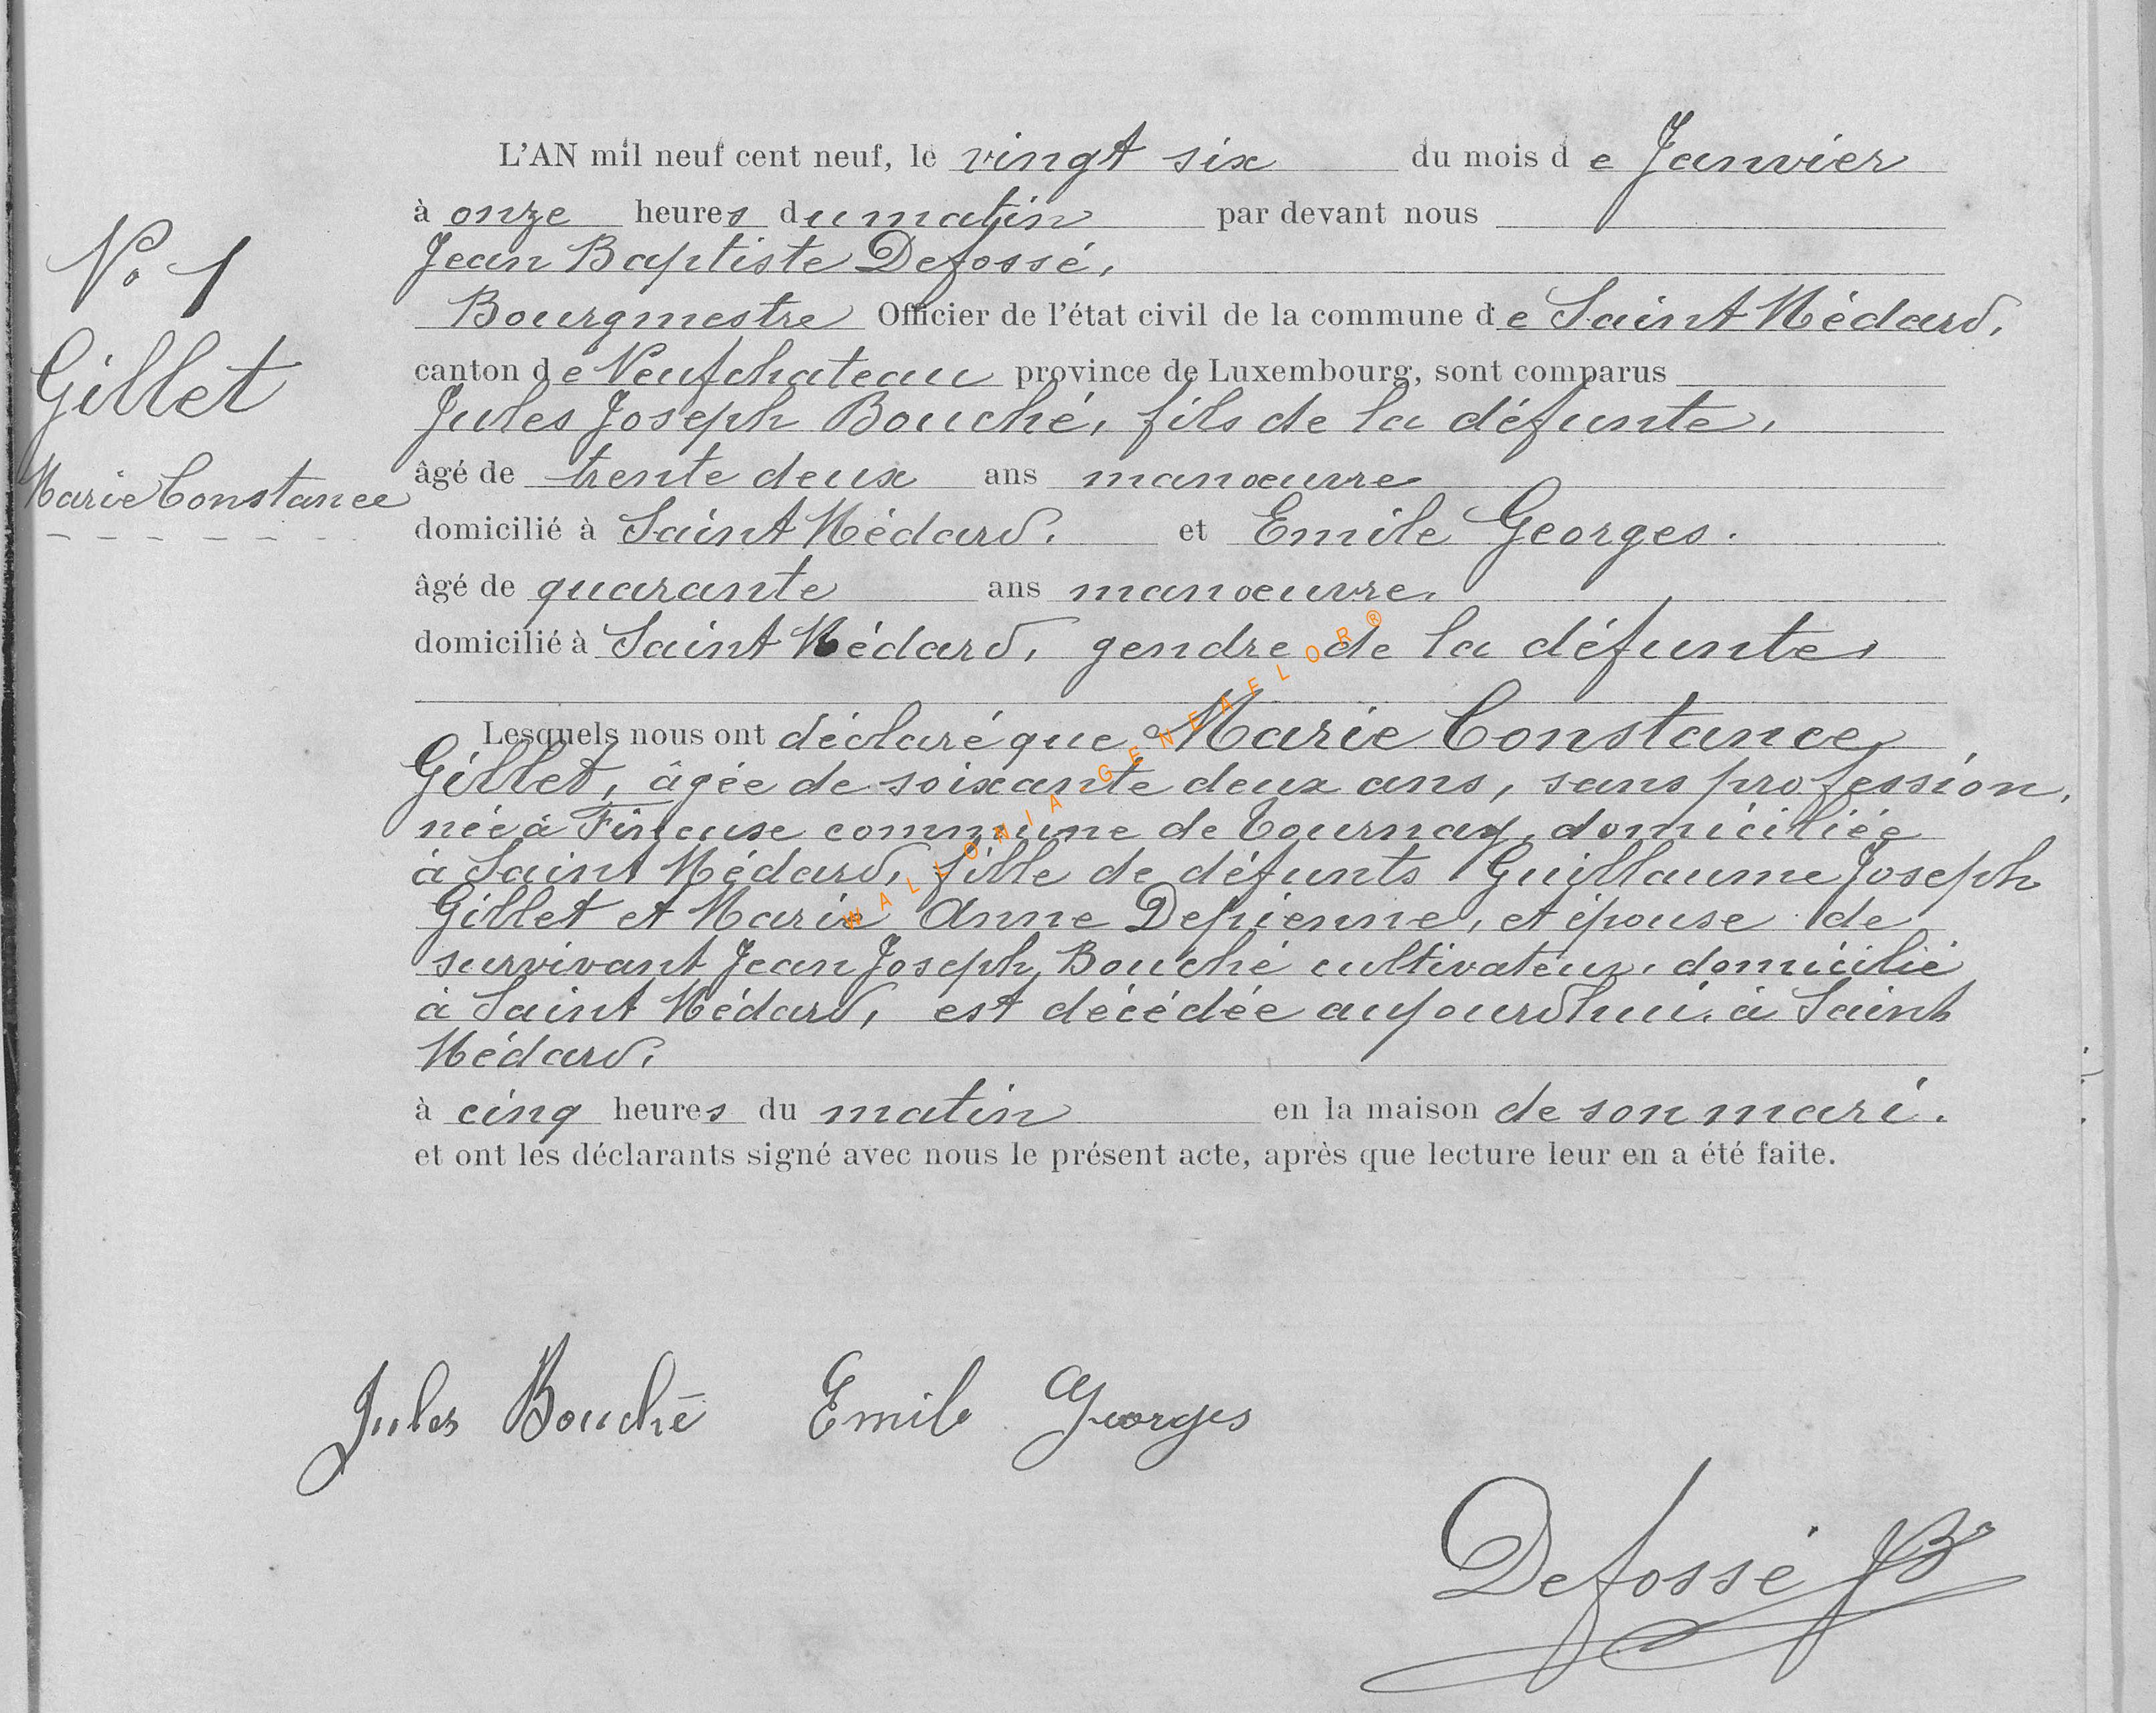 L'AN mil neuf cent neuf, le vingt six du mois de Janvier
à onze heures du matin par devant nous
Jean Baptiste Defossé,
Bourgmestre Officier de l'état civil de la commune de Saint Médard,
canton de Neufchateau province de Luxembourg, sont comparus
Jules Joseph Bouché, fils de la défunte,
âgé de trente deux ans manoeuvre
domicilié à Saint Médard. et Emile Georges.
âgé de quarante ans manoeuvre.
domicilié à Saint Médard, gendre de la défunte,
Lesquels nous ont déclaré que Marie Constance
Gillet, âgée de soixante deux ans, sans profession,
née à commune de Tournay, domiciliée
à Saint Médard, fille de défunts Guillaume Joseph
Gillet et Marie Anne Depienne, et épouse de
survivant Jean Joseph Bouché cultivateur, domicilié
à Saint Médard, est décédée aujourd'hui, à Saint
Médard,
à cinq heures du matin en la maison de son mari.
et ont les déclarants signé avec nous le présent acte, après que lecture leur en a été faite.
No 1
Gillet
Marie Constance
Jules Bouché Emile Georges
Defossé JB
WALLONIA GENEAELOR®